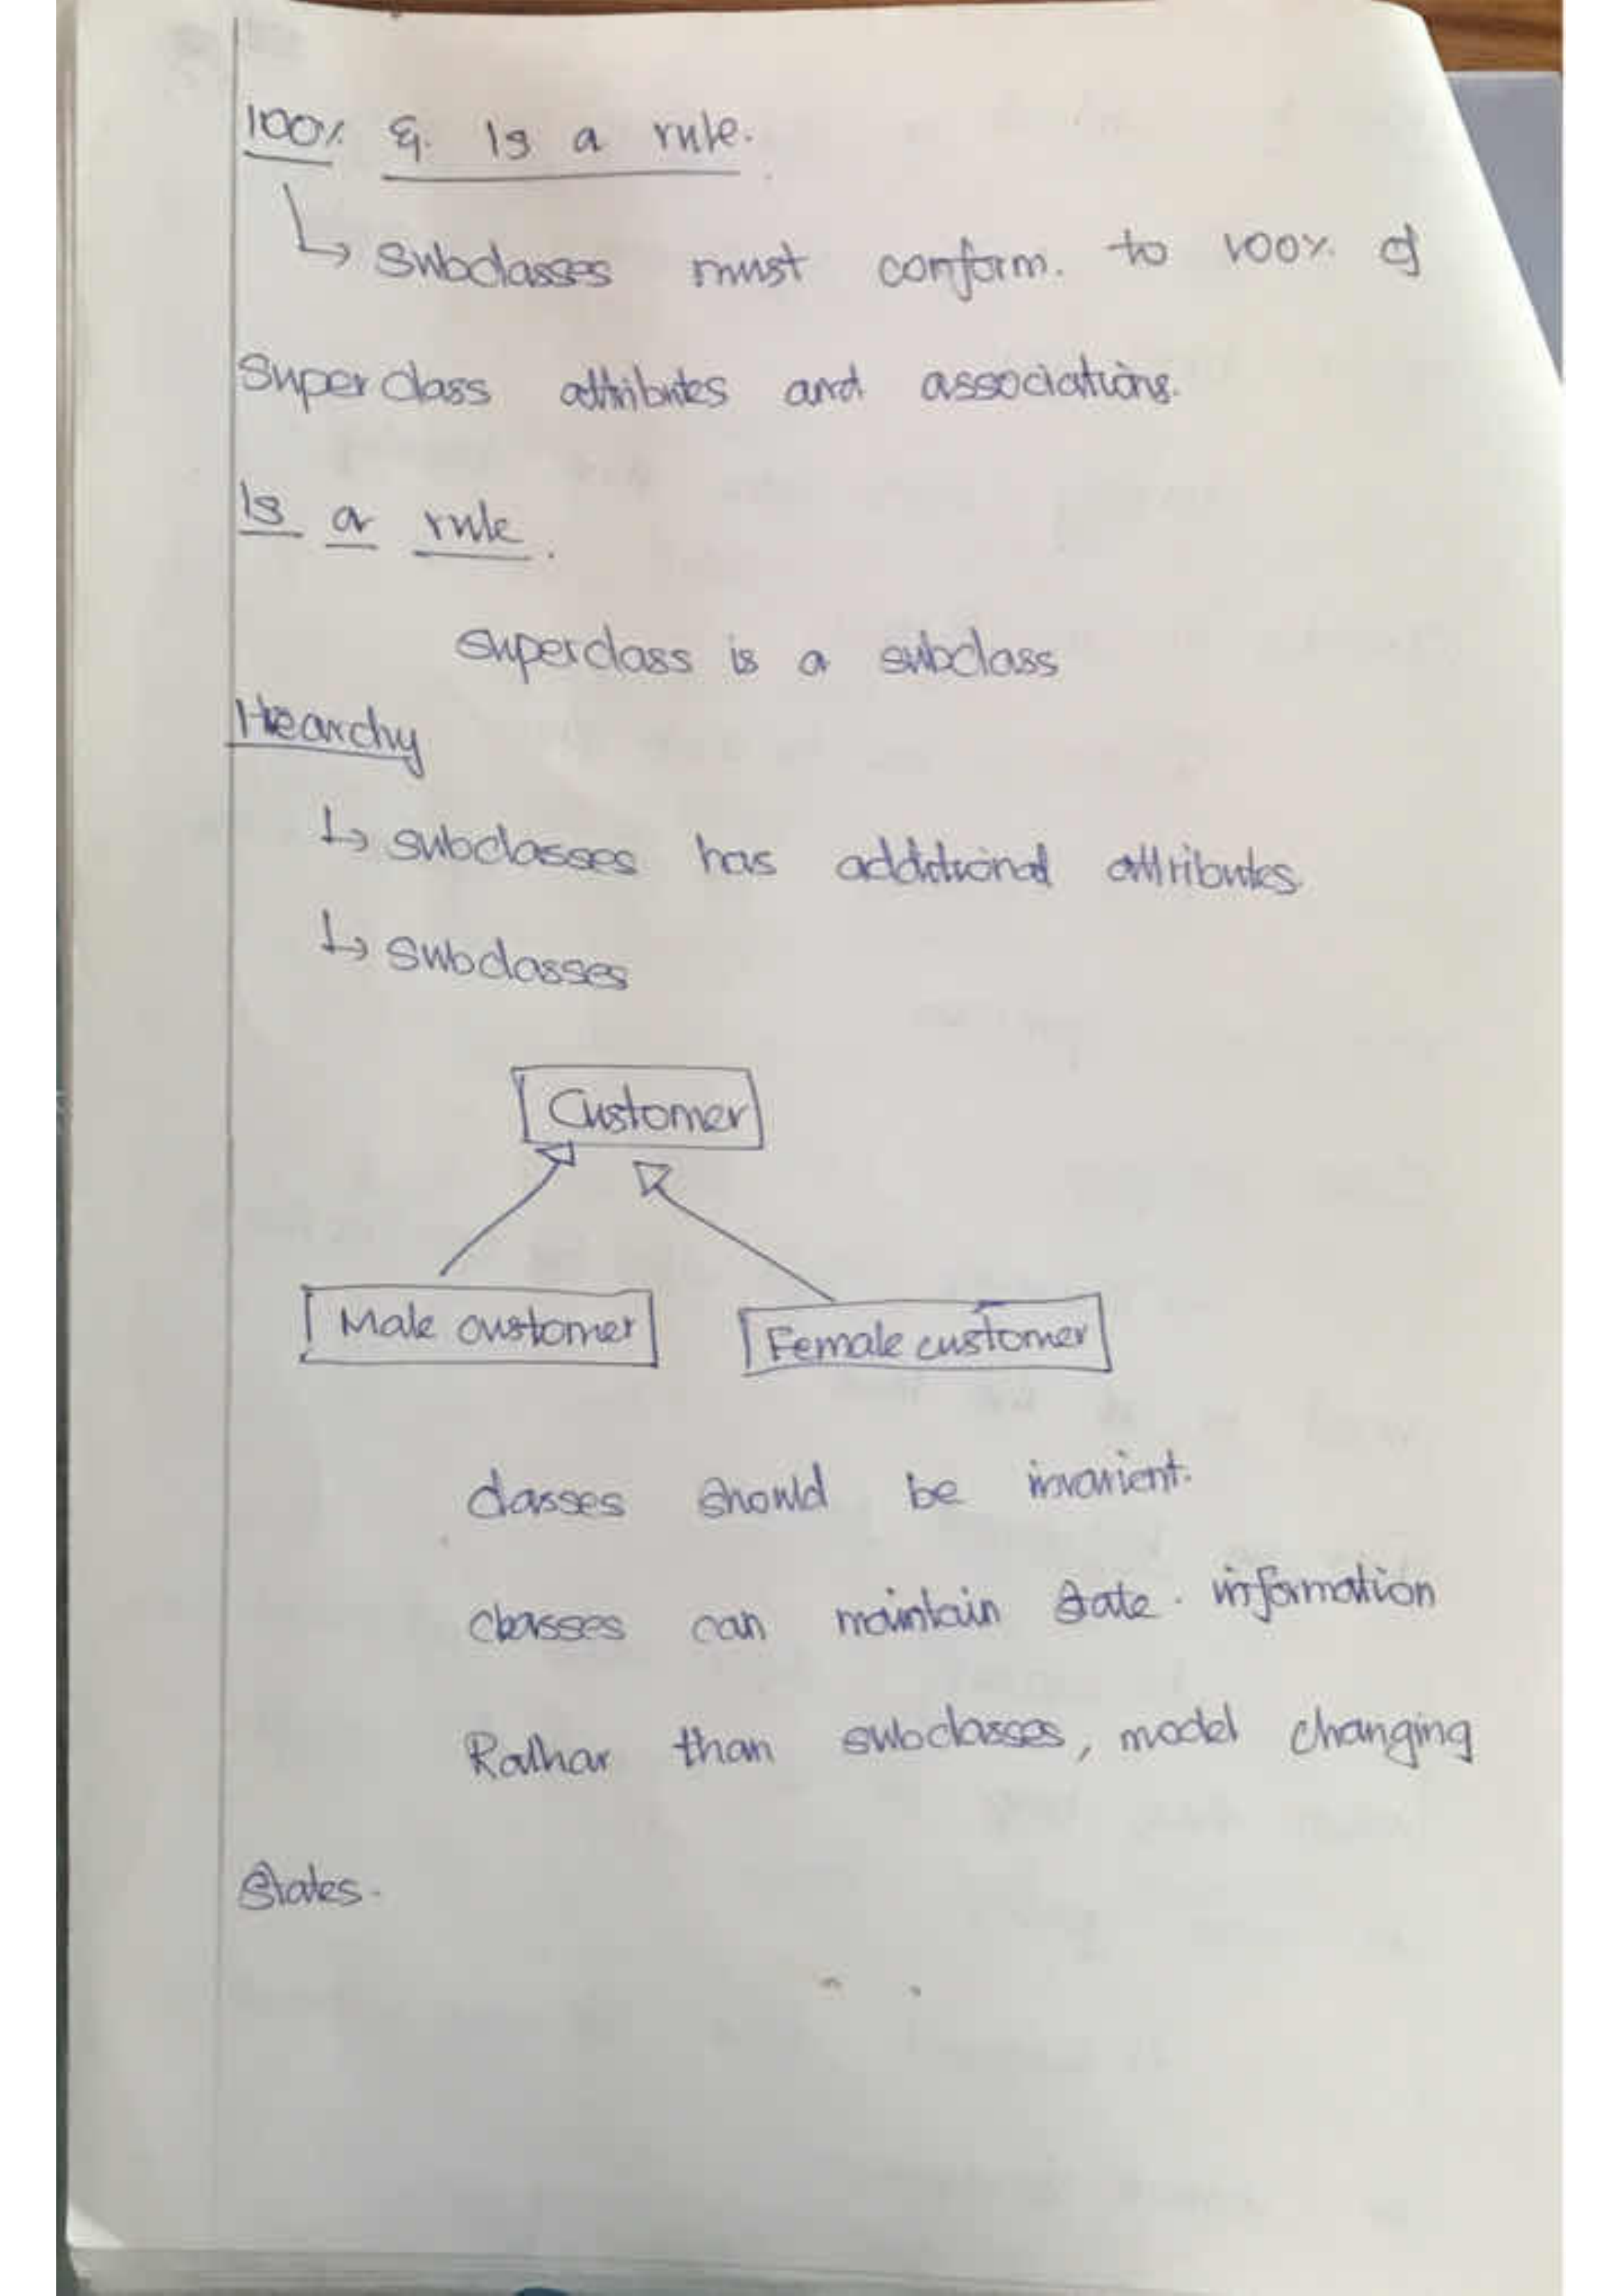 100% & Is a rule.
↳ Subclasses must conform. to 100% of
Superclass attributes and associations.
Is a rule.
superclass is a subclass
Hearchy
↳ subclasses has additional attributes.
↳ subclasses
Customer
Male customer Female customer
classes should be invarient.
classes can maintain state. information
Rathar than subclasses, model changing
states.